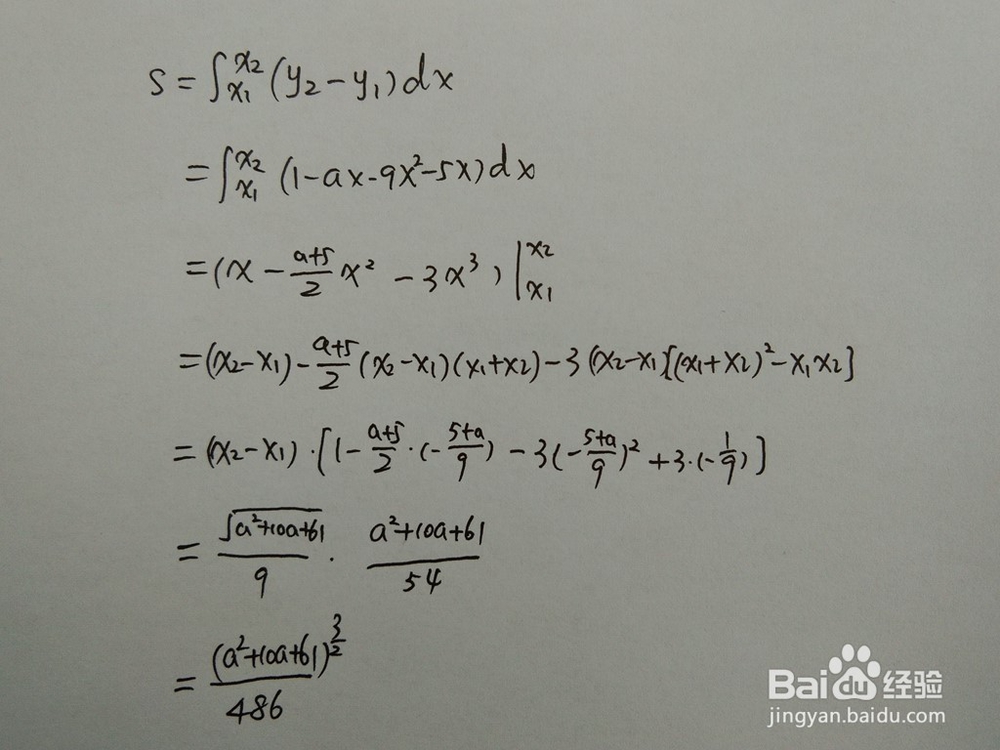 S = ∫_{x1}^{x2} (y2 - y1) dx
= ∫_{x1}^{x2} (1 - ax - 9x² - 5x) dx
= (x - \frac{a+5}{2} x² - 3x³) |_{x1}^{x2}
= (x2 - x1) - \frac{a+5}{2} (x2 - x1)(x1 + x2) - 3 (x2 - x1)[(x1 + x2)² - x1x2]
= (x2 - x1) · [1 - \frac{a+5}{2} · (-\frac{5+a}{9}) - 3(-\frac{5+a}{9})² + 3·(-\frac{1}{9})]
= \frac{\sqrt{a²+10a+61}}{9} · \frac{a²+10a+61}{54}
= \frac{(a²+10a+61)^{\frac{3}{2}}}{486}
Baidu 经验
jingyan.baidu.com